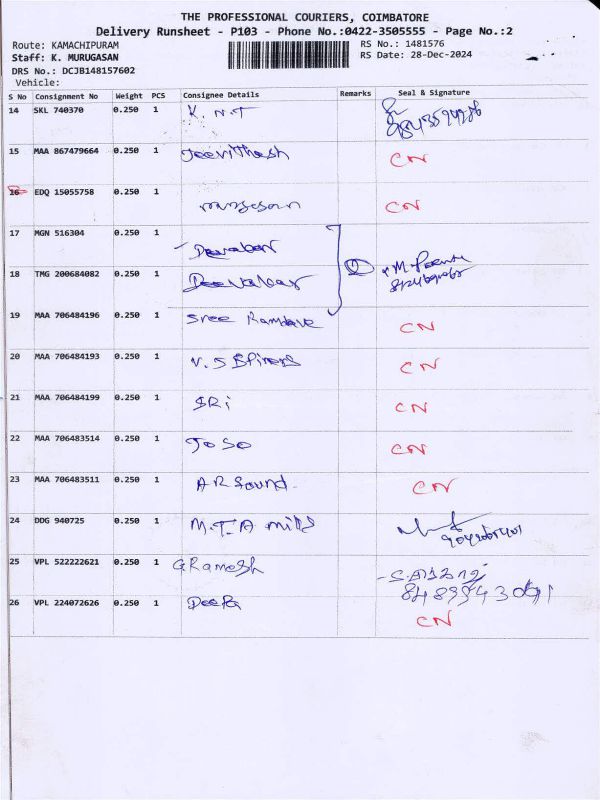 THE PROFESSIONAL COURIERS, COIMBATORE
Delivery Runsheet - P103 - Phone No.:0422-3505555 - Page No.:2
Route: KAMACHIPURAM RS No.: 1481576
Staff: K. MURUGASAN RS Date: 28-Dec-2024
DRS No.: DCJB148157602
Vehicle:
S No Consignment No Weight PCS Consignee Details Remarks Seal & Signature
14 SKL 740370 0.250 1 K. N.T
15 MAA 867479664 0.250 1 Jeevithash CN
16 EDQ 15055758 0.250 1 CN
17 MGN 516304 0.250 1
18 TMG 200684082 0.250 1 2
19 MAA 706484196 0.250 1 Sree CN
20 MAA 706484193 0.250 1 V.S CN
21 MAA 706484199 0.250 1 SRi CN
22 MAA 706483514 0.250 1 JoSo CN
23 MAA 706483511 0.250 1 AR Sound. CN
24 DDG 940725 0.250 1 M.T.A mills
25 VPL 522222621 0.250 1 G Ramesh
26 VPL 224072626 0.250 1 Deepa CN